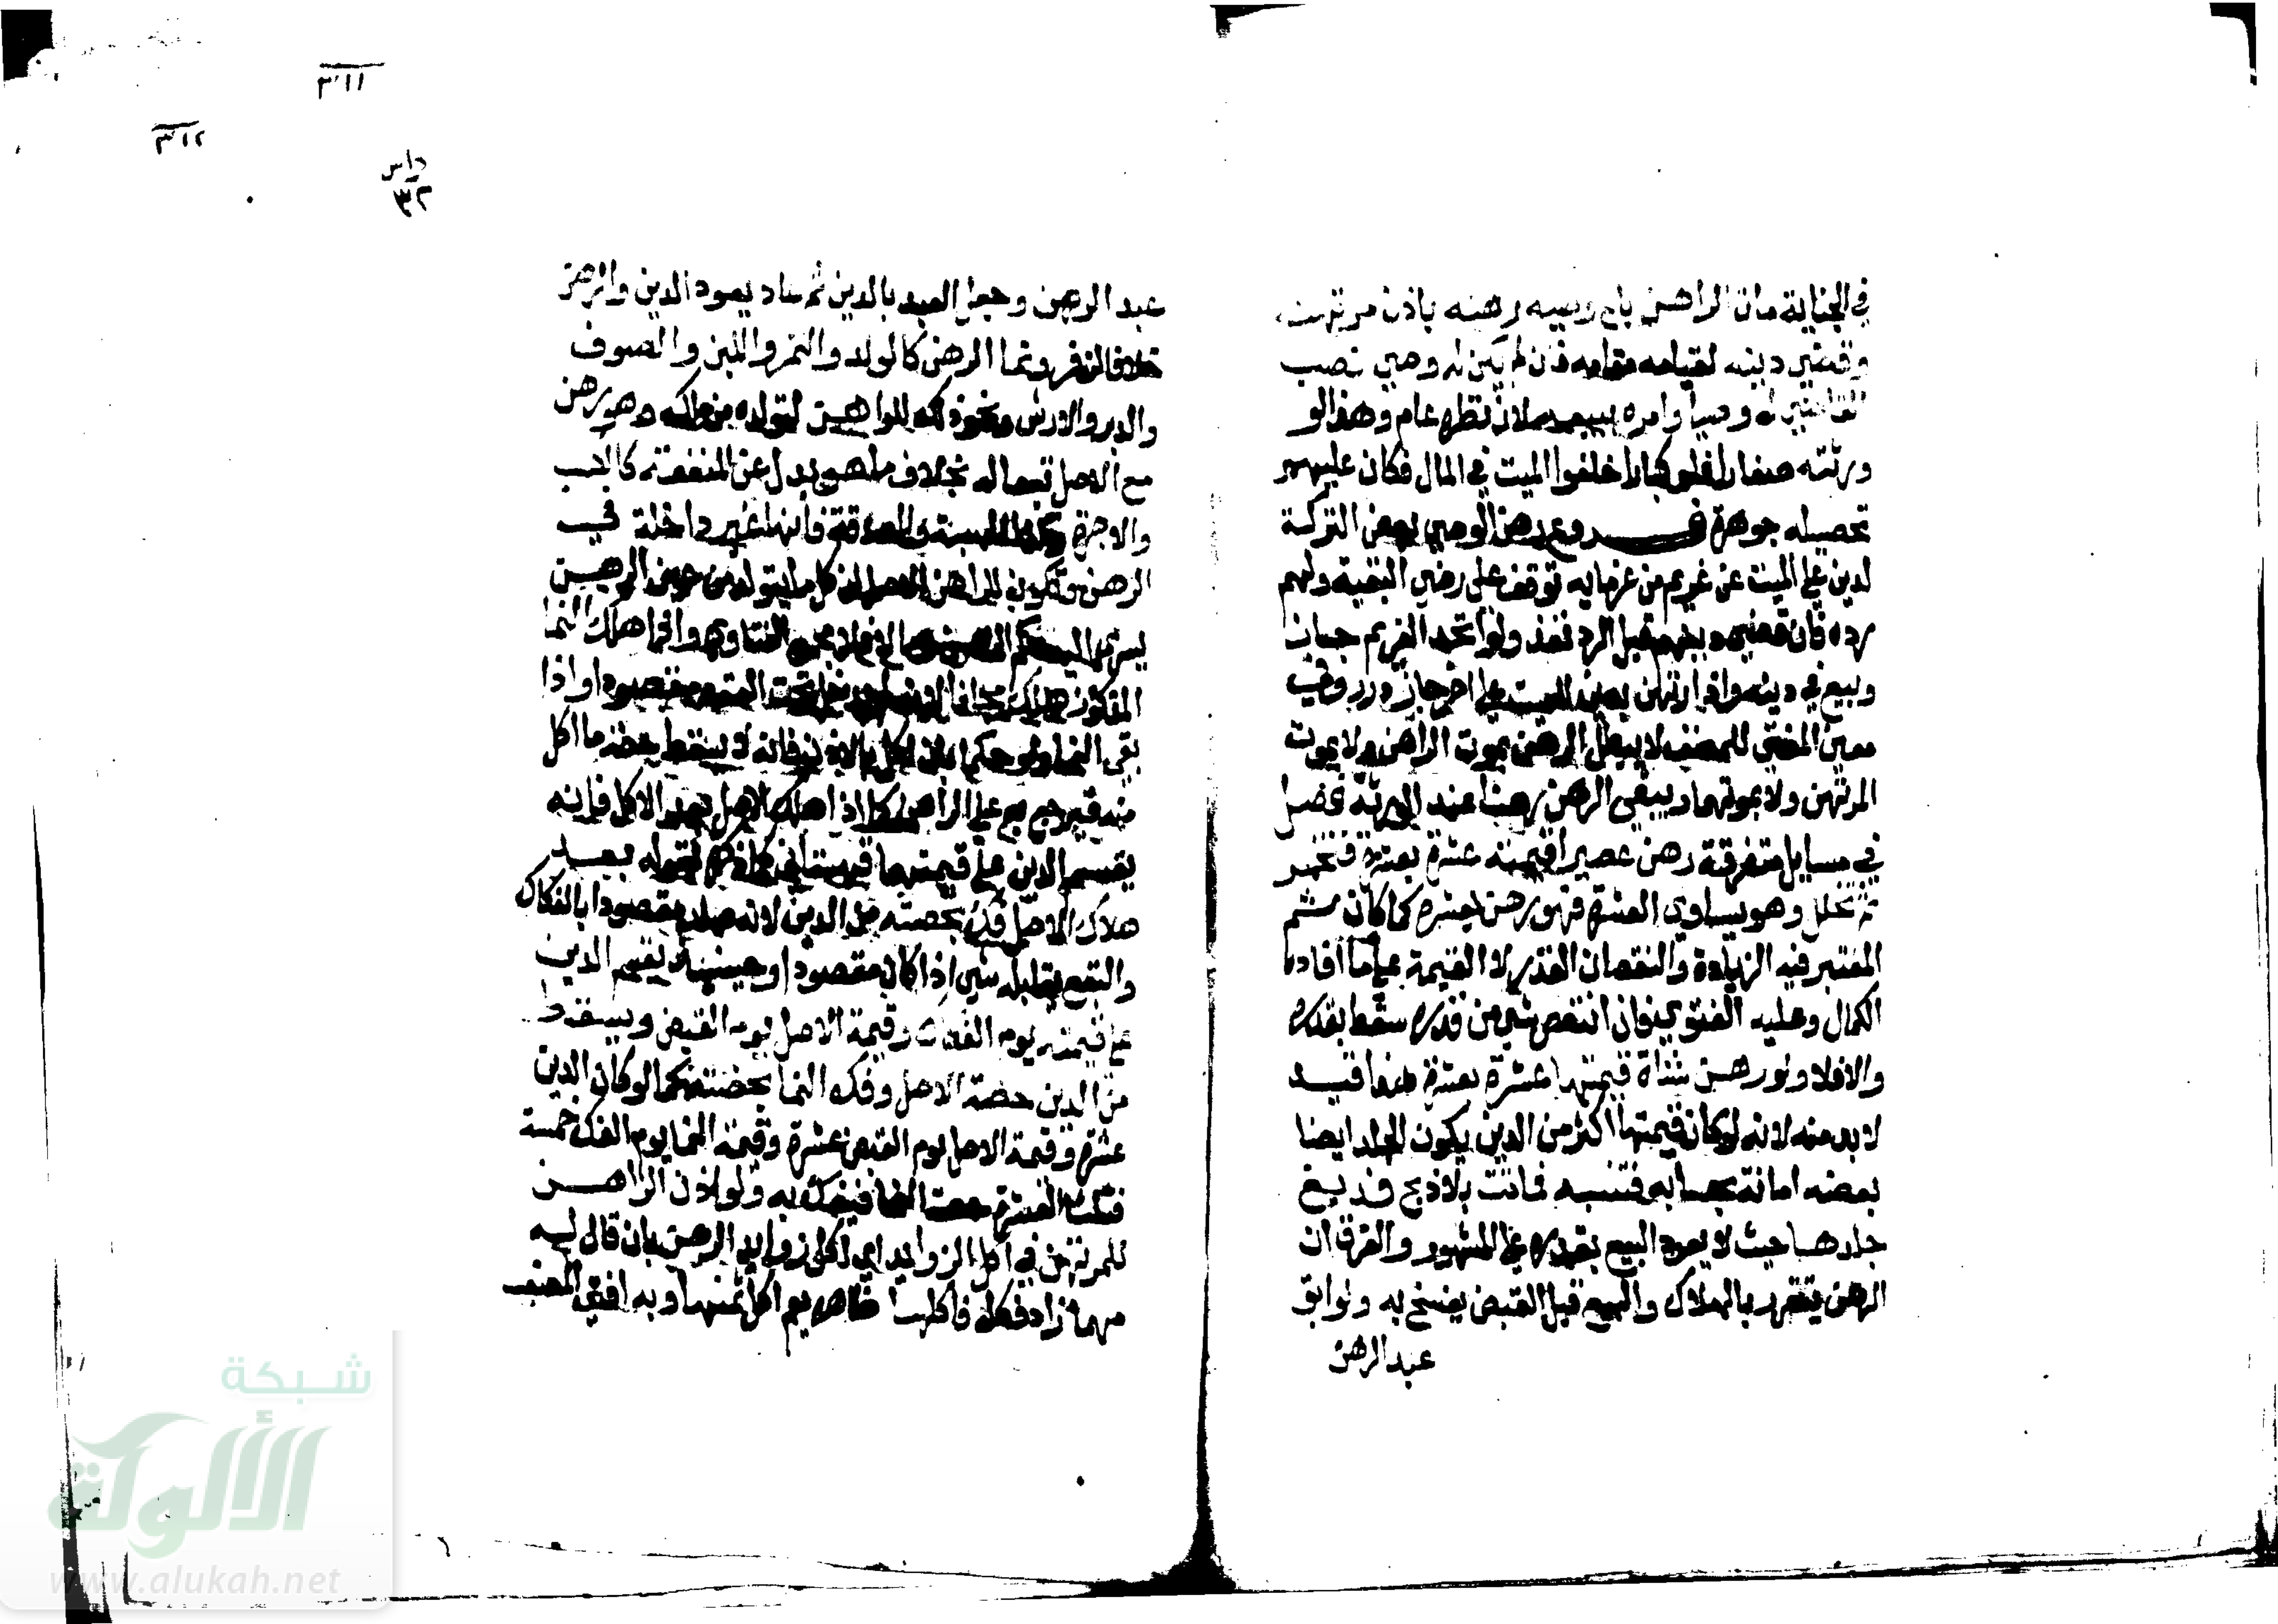 في الجناية مات الراهن باع وصيه رهنه باذن مرتهنه
وقضى دينه لقيامه مقامه فان لم يكن له وصي نصب
القاضي له وصيا وامره ببيعه لان نظره عام وهذا لو
ورثته صغارا فلو كبارا خلفوا الميت في المال فكان عليهم
تحصيله جوهرة فروع رهن الوصي بعض التركة
لدين على الميت عند غريم من غرمايه توقف على رضى البقية ولهم
رده فان قضى دينهم قبل الرد نفذ ولو اتحد الغريم جاز
وبيع في دينه واذا ارتهن بدين للميت على اخر جاز درر وفي
معين المفتي للمصنف لا يبطل الرهن بموت الراهن ولا بموت
المرتهن ولا بموتهما ويبقى الرهن رهنا عند الورثة فصل
في مسايل متفرقة رهن عصيرا قيمته عشرة بعشرة فتخمر
ثم تخلل وهو يساوي العشرة فهو رهن بعشرة كما كان ثم
المعتبر فيه الزيادة والنقصان القدر لا القيمة على ما افاده
الكمال وعليه الفتوى فان انتقص شي من قدره سقط بقدره
والا فلا ولو رهن شاة قيمتها عشرة بعشرة هذا قيد
لا بد منه لانه لو كان قيمتها اكثر من الدين يكون الجلد ايضا
بعضه امانة بحسابه فتنبه فماتت بلا ذبح فدبغ
جلدها حيث لا يعود البيع بقدره على المشهور والفرق ان
الرهن يتقرر بالهلاك والبيع قبل القبض يفسخ به ولو ابق
عبد الرهن
٣١١
٣١٢
٣٢
عبد الرهن وجعل العبد بالدين ثم عاد يعود الدين والرهن
خلافا لزفر ونما الرهن كالولد والثمر واللبن والصوف
والوبر والارش ونحو ذلك للراهن لتولده من ملكه وهو رهن
مع الاصل تبعا له بخلاف ما هو بدل عن المنفعة كالكسب
والاجرة وكذا الهبة والصدقة فانها غير داخلة في
الرهن وتكون للراهن الاصل ان كل ما يتولد من عين الرهن
يسري اليه حكم الرهن وما لا فلا مجمع الفتاوى واذا هلك النما
المذكور هلك مجانا لانه لم يدخل تحت العقد مقصودا واذا
بقي النما ولو حكما بان اكل بالاذن فانه لا يسقط حصة ما اكل
منه فيرجع به على الراهن كما اذا هلك الاصل بعد الاكل فانه
يقسم الدين على قيمتهما قهستاني كما ذكره بقوله بعد
هلاك الاصل فك بحصته من الدين لانه صار مقصودا بالفكاك
والتبع يقابله شي اذا كان مقصودا وحينئذ يقسم الدين
على قيمته يوم الفكاك وقيمة الاصل يوم القبض ويسقط
من الدين حصة الاصل وفك النما بحصته كما لو كان الدين
عشرة وقيمة الاصل يوم القبض عشرة وقيمة النما يوم الفك خمسة
فثلث العشرة حصة النما فيفك به ولو اذن الراهن
للمرتهن في اكل الزوايد اي اكل زوايد الرهن بان قال له
مهما زاد فكله فاكلها ظاهره يعم اكل ثمنها وبه افتى المصنف
شبكة
الألوكة
www.alukah.net